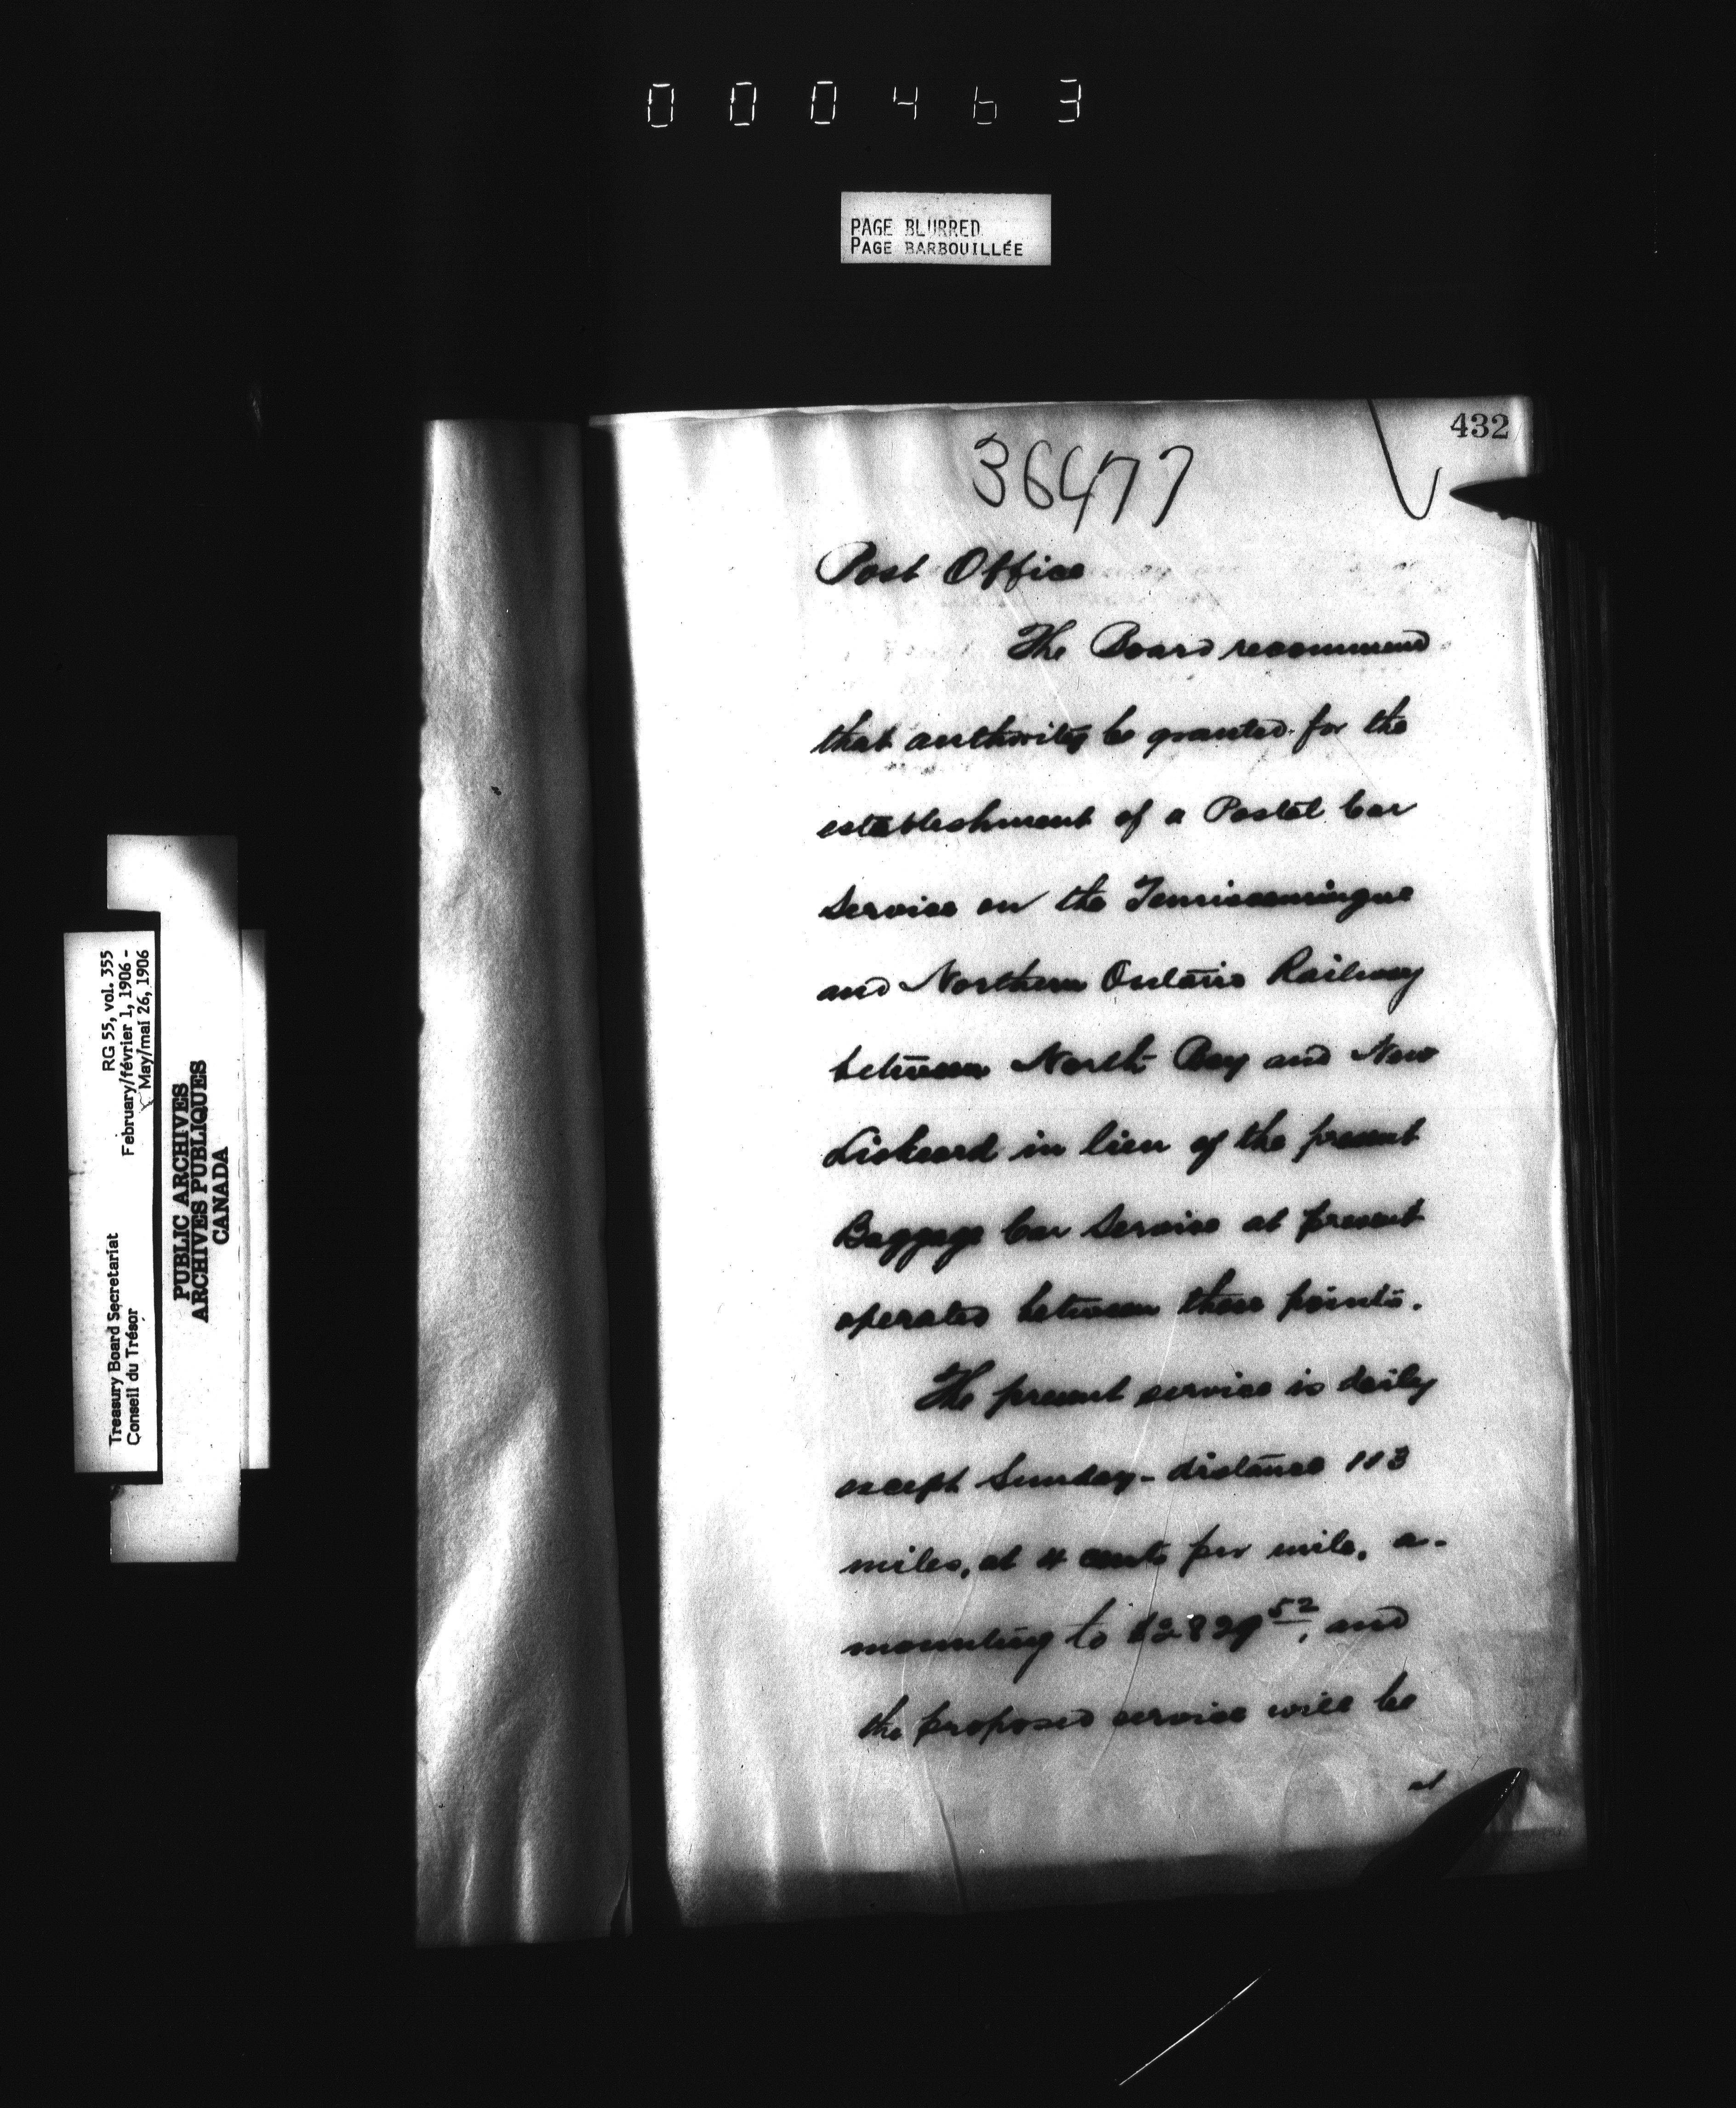 000463
PAGE BLURRED
PAGE BARBOUILLÉE
432
36477
Post Office
The Board recommend
that authority be granted for the
establishment of a Postal Car
Service on the Temiscamingue
and Northern Ontario Railway
between North Bay and New
Liskeard in lieu of the present
Baggage Car Service at present
operated between these points.
The present service is daily
except Sunday - distance 113
miles, at 4 cents per mile, a-
mounting to $2829 52, and
the proposed service will be
at
Treasury Board Secretariat RG 55, vol. 355
Conseil du Trésor February/février 1, 1906 -
May/mai 26, 1906
PUBLIC ARCHIVES
ARCHIVES PUBLIQUES
CANADA